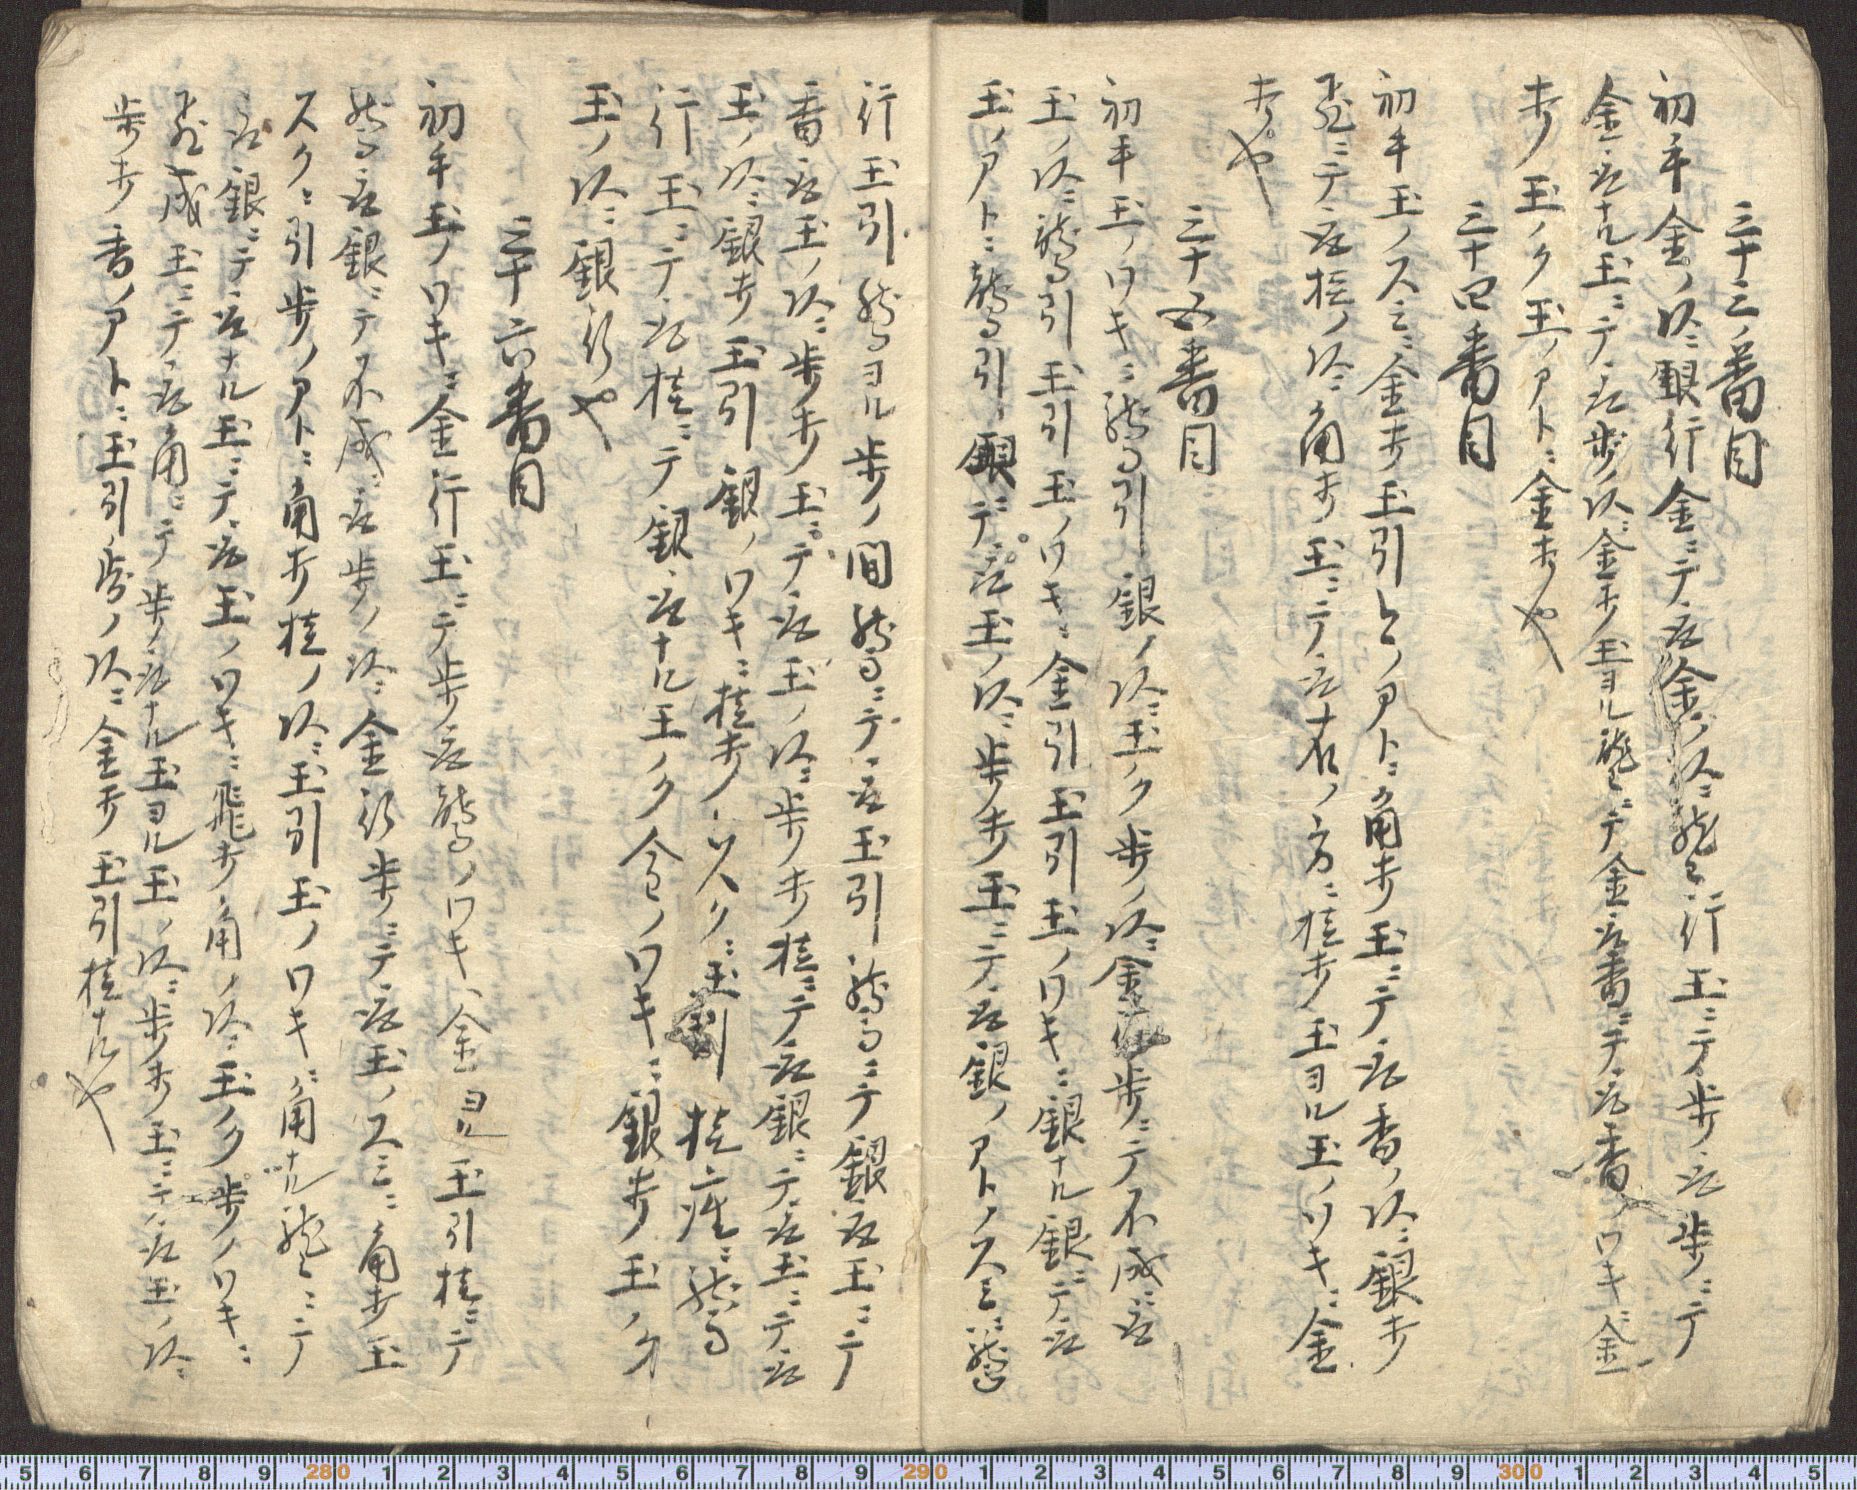 三十三番目
初手金ノ次ニ銀行金ニテ取金ノ次ニ龍行玉ニテ歩取歩ニテ
金取ナル玉ニテ取歩ノ次ニ金打玉ヨル龍ニテ金取香ニテ取香ノワキニ金
打玉ノク玉ノアトニ金打也
三十四番目
初手玉ノスミニ金打玉引ヒノアトニ角打玉ニテ取香ノ次ニ銀打
飛ニテ取桂ノ次ニ角打玉ニテ取ナ右ノ方ニ桂打玉ヨル玉ノワキニ金
打也
三十五番目
初手玉ノワキニ龍馬引銀ノ次ニ玉ノク歩ノ次ニ金打歩ニテ不成ニ取
玉ノ次ニ龍馬引玉引玉ノワキニ金引玉引玉ノワキニ銀ナル銀ニテ取
玉ノアトニ龍馬引銀ニテ取玉ノ次ニ歩打玉ニテ取銀ノアトノスミニ龍馬
行玉引龍馬ヨル歩ノ間龍馬ニテ取玉引龍馬ニテ銀取玉ニテ
香取玉ノ次ニ歩打玉ニテ取玉ノ次ニ歩打桂ニテ取銀ニテ取玉ニテ取
玉ノ次ニ銀打玉引銀ノワキニ桂打ノスクニ玉引桂ニ龍馬
行玉ニテ取桂ニテ銀取ナル玉ノク金ノワキニ銀打玉ノク
玉ノ次ニ銀行也
三十六番目
初手玉ノワキニ金行玉ニテ歩取龍馬ノワキニ金ヨル玉引桂ニテ
龍馬取銀ニテ不成ニ取歩ノ次ニ金行歩ニテ取玉ノスミニ角打玉
スクニ引歩ノアトニ角打桂ノ次ニ玉引玉ノワキニ角ナル龍ニテ
取銀ニテ取ナル玉ニテ取玉ノワキニ飛打角ノ次ニ玉ノク歩ノワキニ
飛成玉ニテ取角ニテ歩取ナル玉ヨル玉ノ次ニ歩打玉ニテ取玉ノ次ニ
歩打香ノアトニ玉引歩ノ次ニ金打玉引桂ナル也